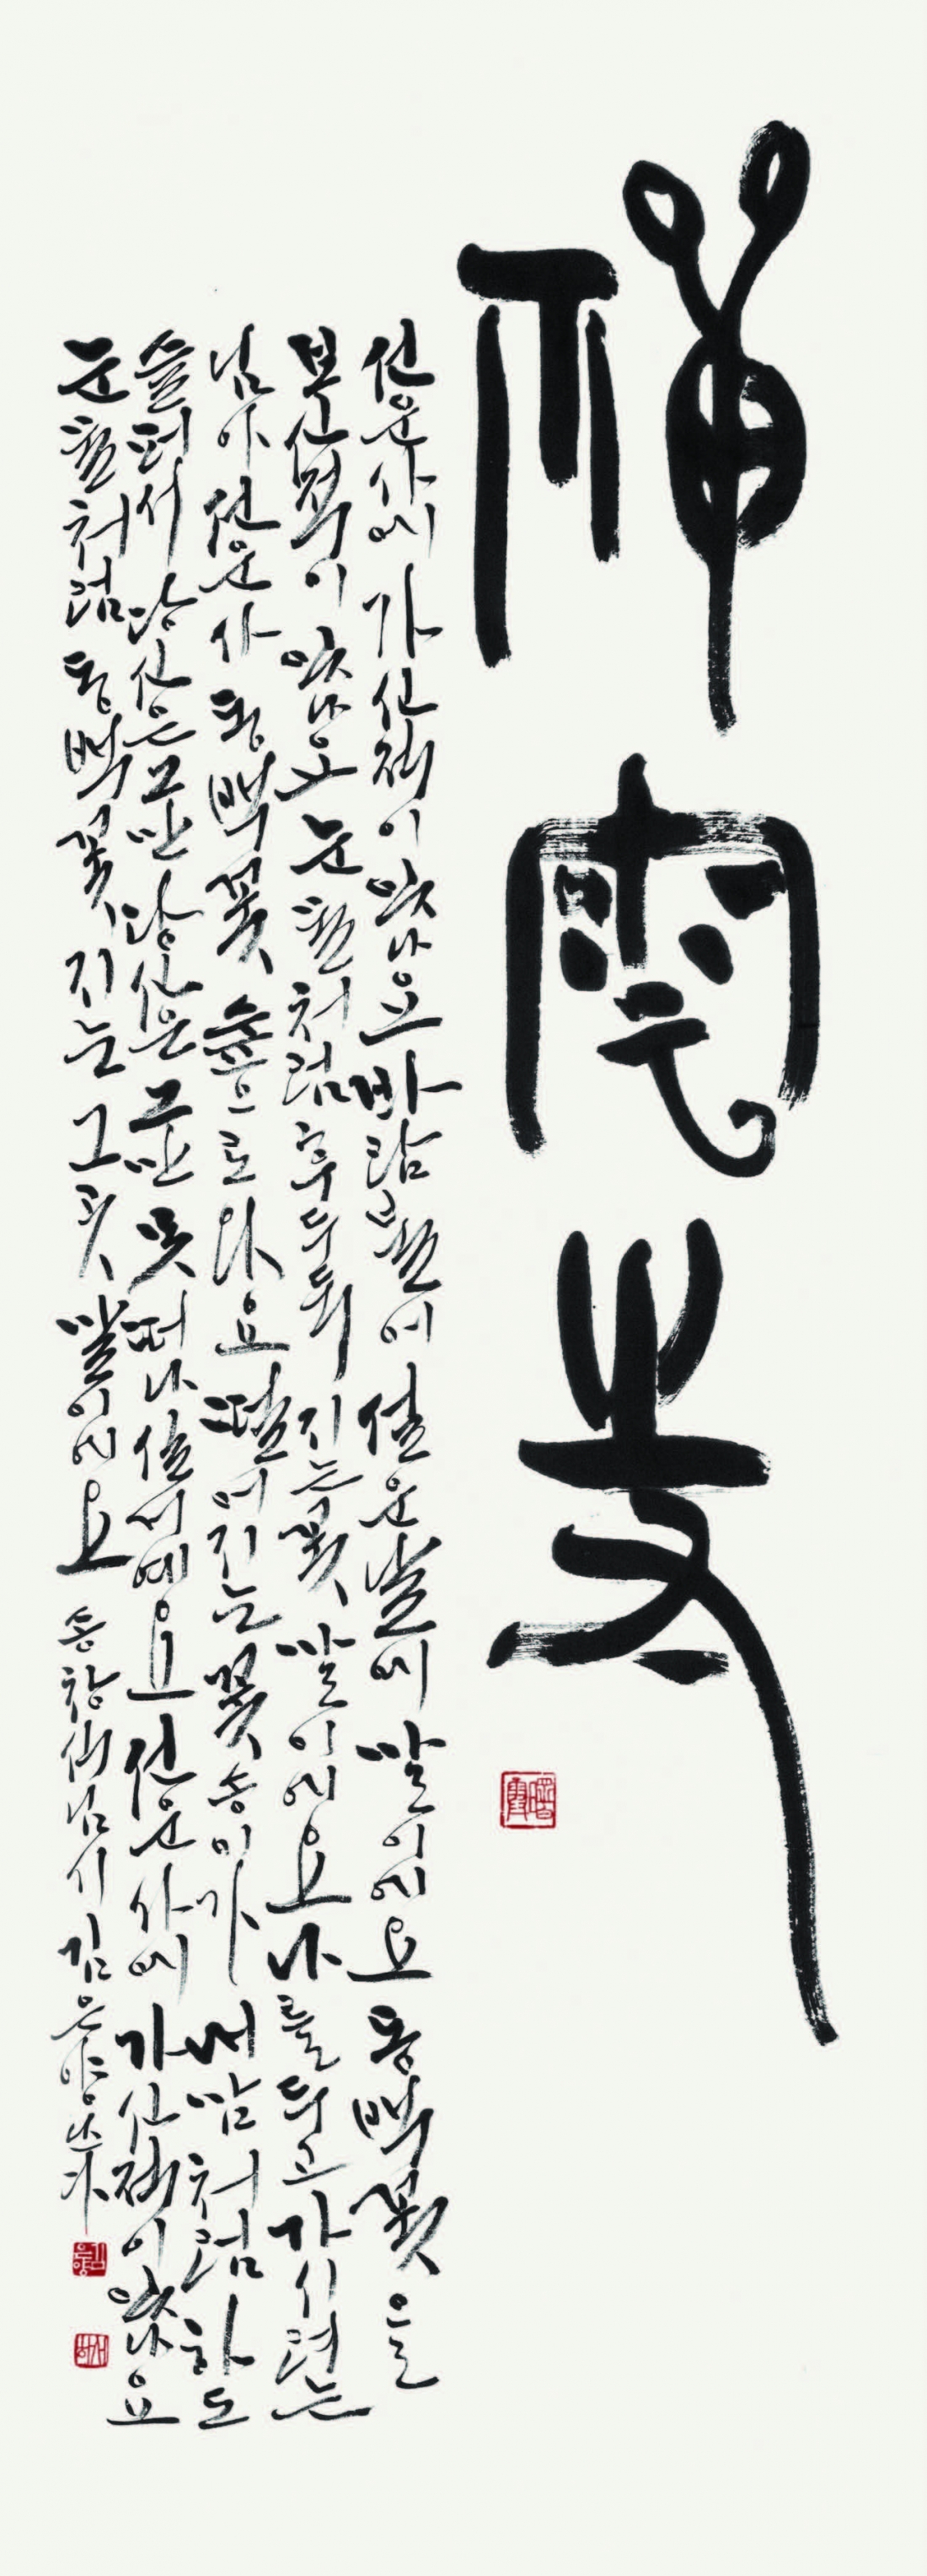 禪雲寺
선운사에 가신적이 있나요 바람불어 설운날에 말이에요 동백꽃을
보신적이 있나요 눈물처럼 후두둑 지는꽃 말이에요 나를두고 가시려는
님아 선운사 동백꽃 숲으로 와요 떨어지는 꽃송이가 내맘처럼 하도
슬퍼서 당신은 그만 당신은 그만 못 떠나실거예요 선운사에 가신적이 있나요
눈물처럼 동백꽃 지는 그곳 말이에요 송창식님 시 쓰다